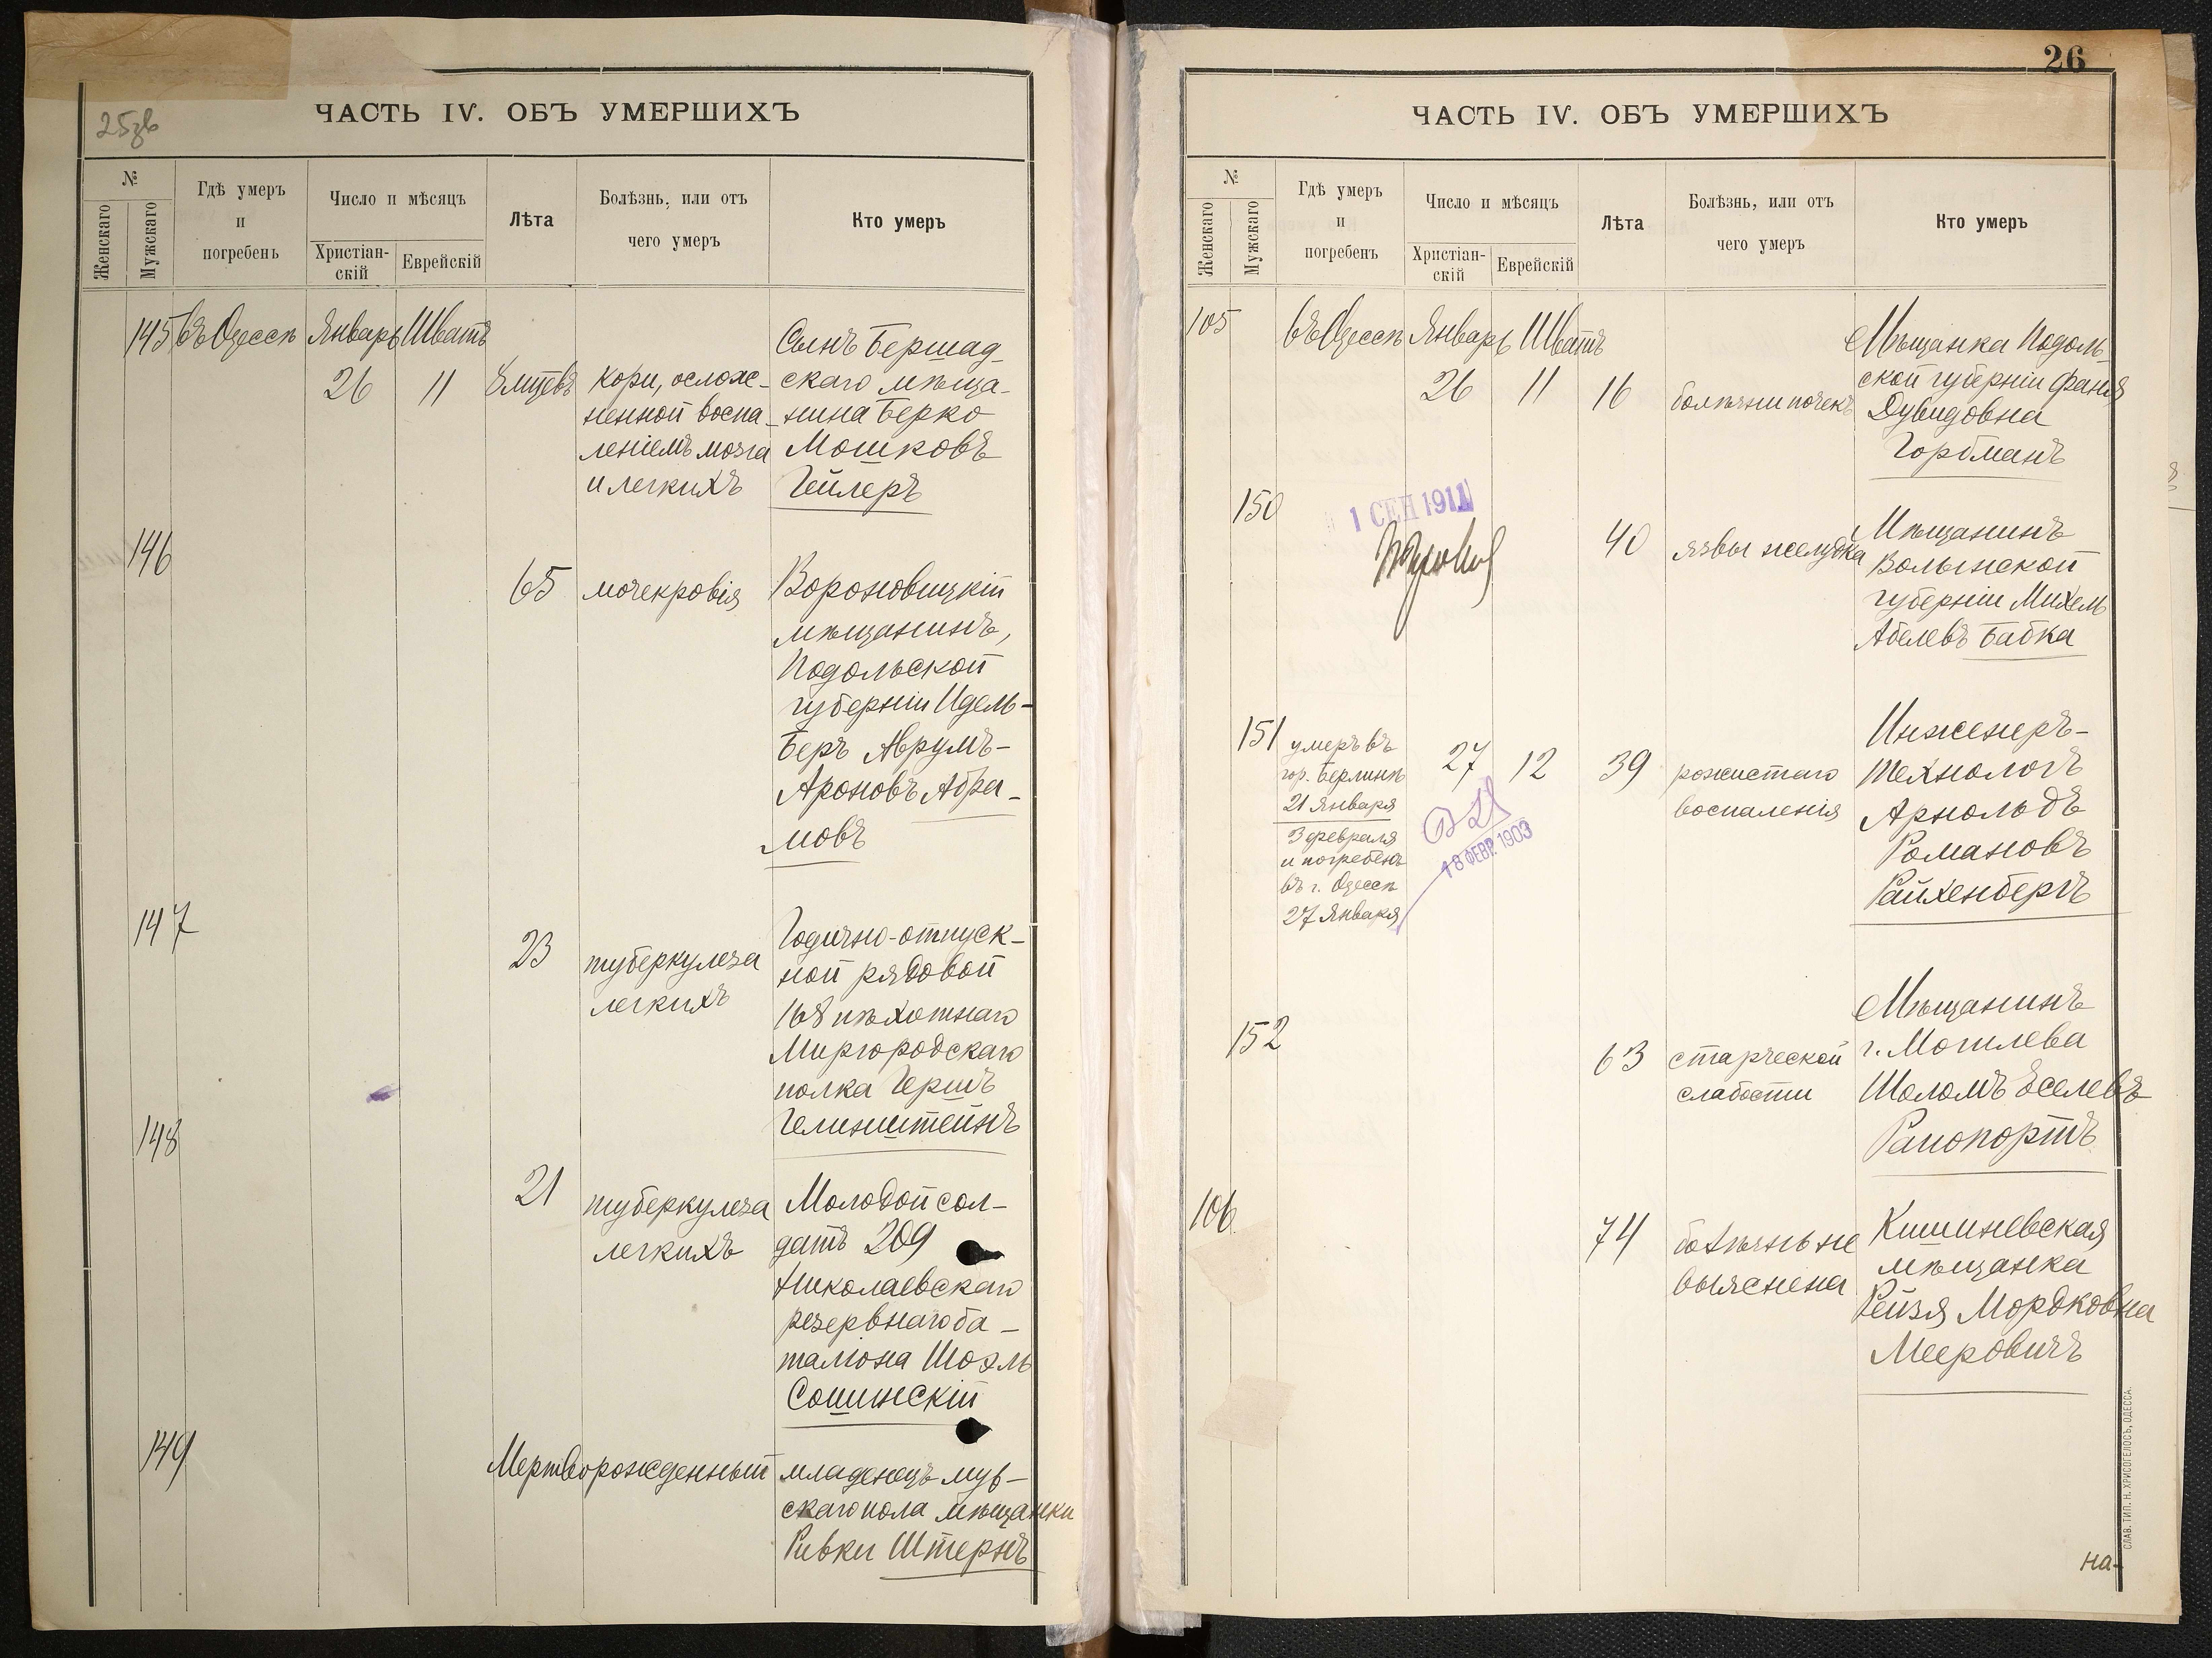 25зв
ЧАСТЬ IV. ОБЪ УМЕРШИХЪ
№
Женскаго
Мужскаго
Гдѣ умеръ
и
погребенъ
Число и мѣсяцъ
Христіан-
скій
Еврейскій
Лѣта
Болѣзнь, или отъ
чего умеръ
Кто умеръ
145 въ Одессѣ Январь Шватъ
26 11 8 мцевъ
Кори, ослож-
ненной воспа-
леніемъ мозга
и легкихъ
Сынъ Бершад-
скаго мѣща-
нина Берко
Мошковъ
Гейлеръ
146
65 мочекровія
Вороновицкій
мѣщанинъ,
Подольской
губерніи Идель-
Беръ Аврумъ-
Ароновъ Абра-
мовъ
147
23 туберкулеза
легкихъ
Годично-отпуск-
ной рядовой
168 пѣхотнаго
Миргородскаго
полка Гершъ
Гелинштейнъ
148
21 туберкулеза
легкихъ
Молодой сол-
датъ 209
Николаевскаго
резервнаго ба-
таліона Шоэль
Сошинскій
149
Мертворожденный младенецъ муж-
скаго пола мѣщанки
Ривки Штернъ
26
ЧАСТЬ IV. ОБЪ УМЕРШИХЪ
№
Женскаго
Мужскаго
Гдѣ умеръ
и
погребенъ
Число и мѣсяцъ
Христіан-
скій
Еврейскій
Лѣта
Болѣзнь, или отъ
чего умеръ
Кто умеръ
105 въ Одессѣ Январь Шватъ
26 11 16 болѣзни почекъ
Мѣщанка Подоль-
ской губерніи Фаня
Дувидовна
Горбманъ
150
1 СЕН 1911
40 язвы желудка
Мѣщанинъ
Волынской
губерніи Михель
Абелевъ Бабка
151
умеръ въ
гор. Берлинѣ
21 Января
3 февраля
и погребенъ
въ г. Одессѣ
27 Января
27 12 39
18 ФЕВР. 1903
рожистаго
воспаленія
Инженеръ-
технологъ
Арнольдъ
Романовъ
Райхенбергъ
152
63 старческой
слабости
Мѣщанинъ
г. Могилева
Шоломъ Еселевъ
Рапопортъ
106
74 болѣзнь не
выяснена
Кишиневская
мѣщанка
Рейзя Мордковна
Мееровичъ
на-
СЛАВ. ТИП. Н. ХРИСОГЕЛОСЪ, ОДЕССА.